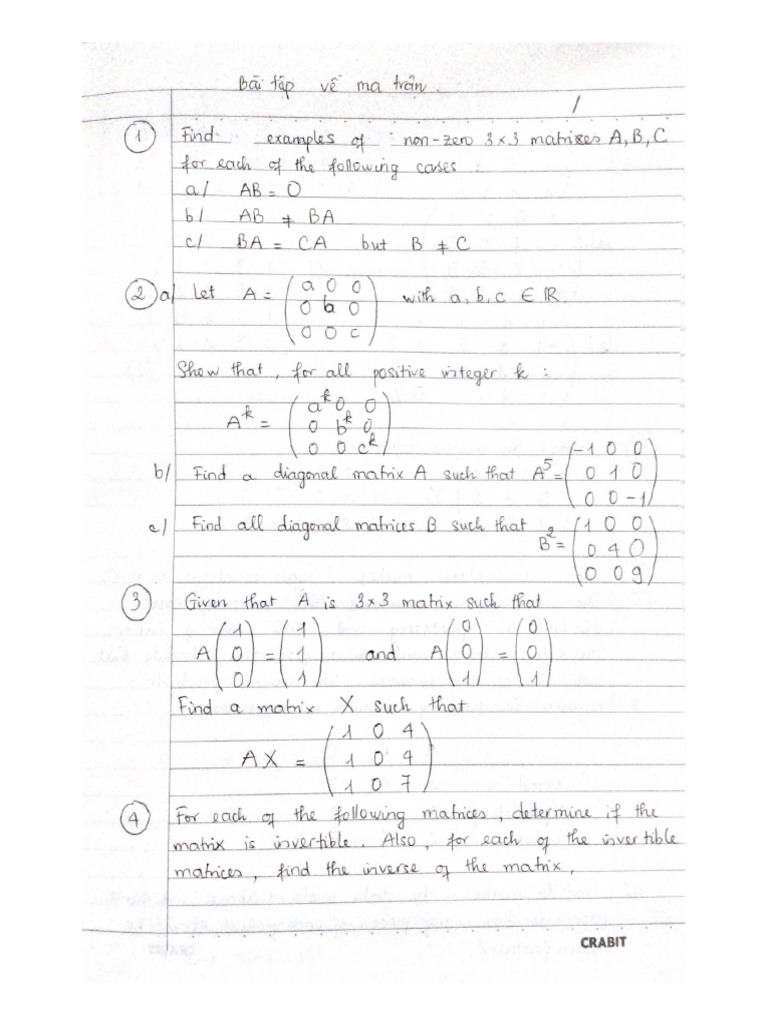 Bài tập về ma trận.
/
① Find examples of non-zero 3×3 matrices A, B, C
for each of the following cases :
a/ AB = O
b/ AB ≠ BA
c/ BA = CA but B ≠ C
② a/ Let A = (a 0 0
0 b 0
0 0 c) with a, b, c ∈ IR.
Show that, for all positive integer k :
A^k = (a^k 0 0
0 b^k 0
0 0 c^k)
b/ Find a diagonal matrix A such that A^5 = (-1 0 0
0 1 0
0 0 -1)
c/ Find all diagonal matrices B such that
B^2 = (1 0 0
0 4 0
0 0 9)
③ Given that A is 3×3 matrix such that
A (1 0 0) = (1 1 1) and A (0 0 1) = (0 0 1)
Find a matrix X such that
AX = (1 0 4
1 0 4
1 0 7)
④ For each of the following matrices, determine if the
matrix is invertible. Also, for each of the invertible
matrices, find the inverse of the matrix,
CRABIT